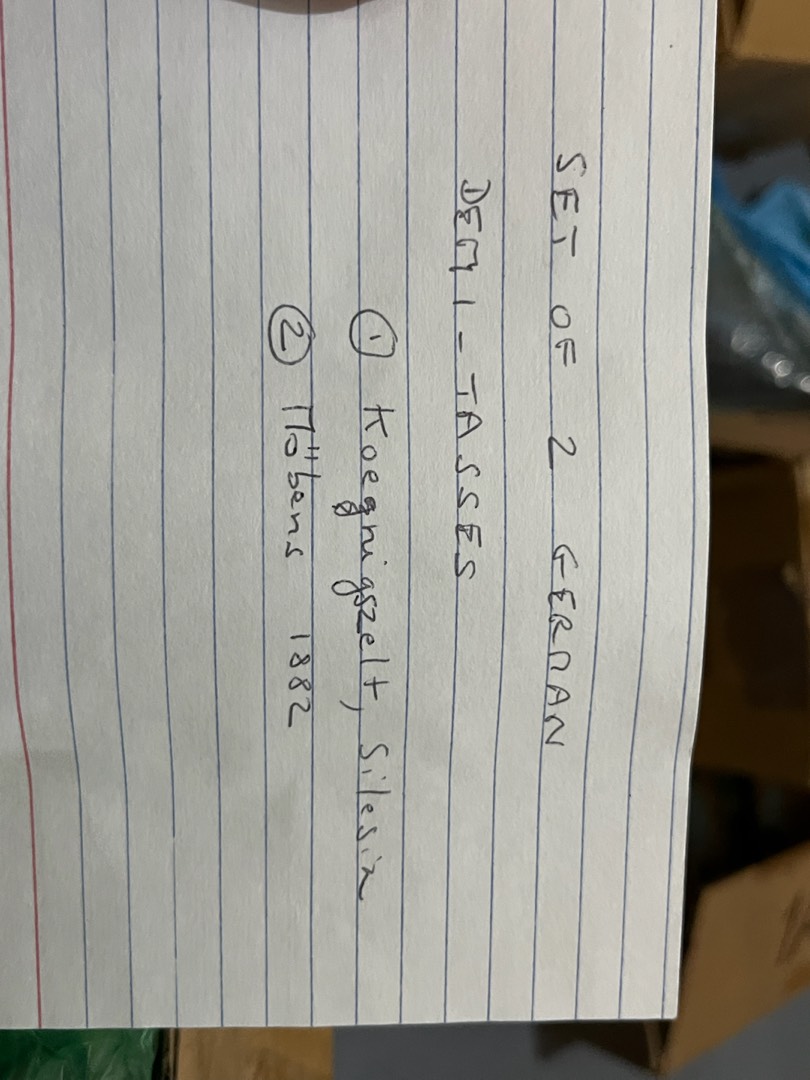 SET OF 2 GERMAN
DEMI-TASSES
① Koegnigszelt, Silesia
② Möbens 1882